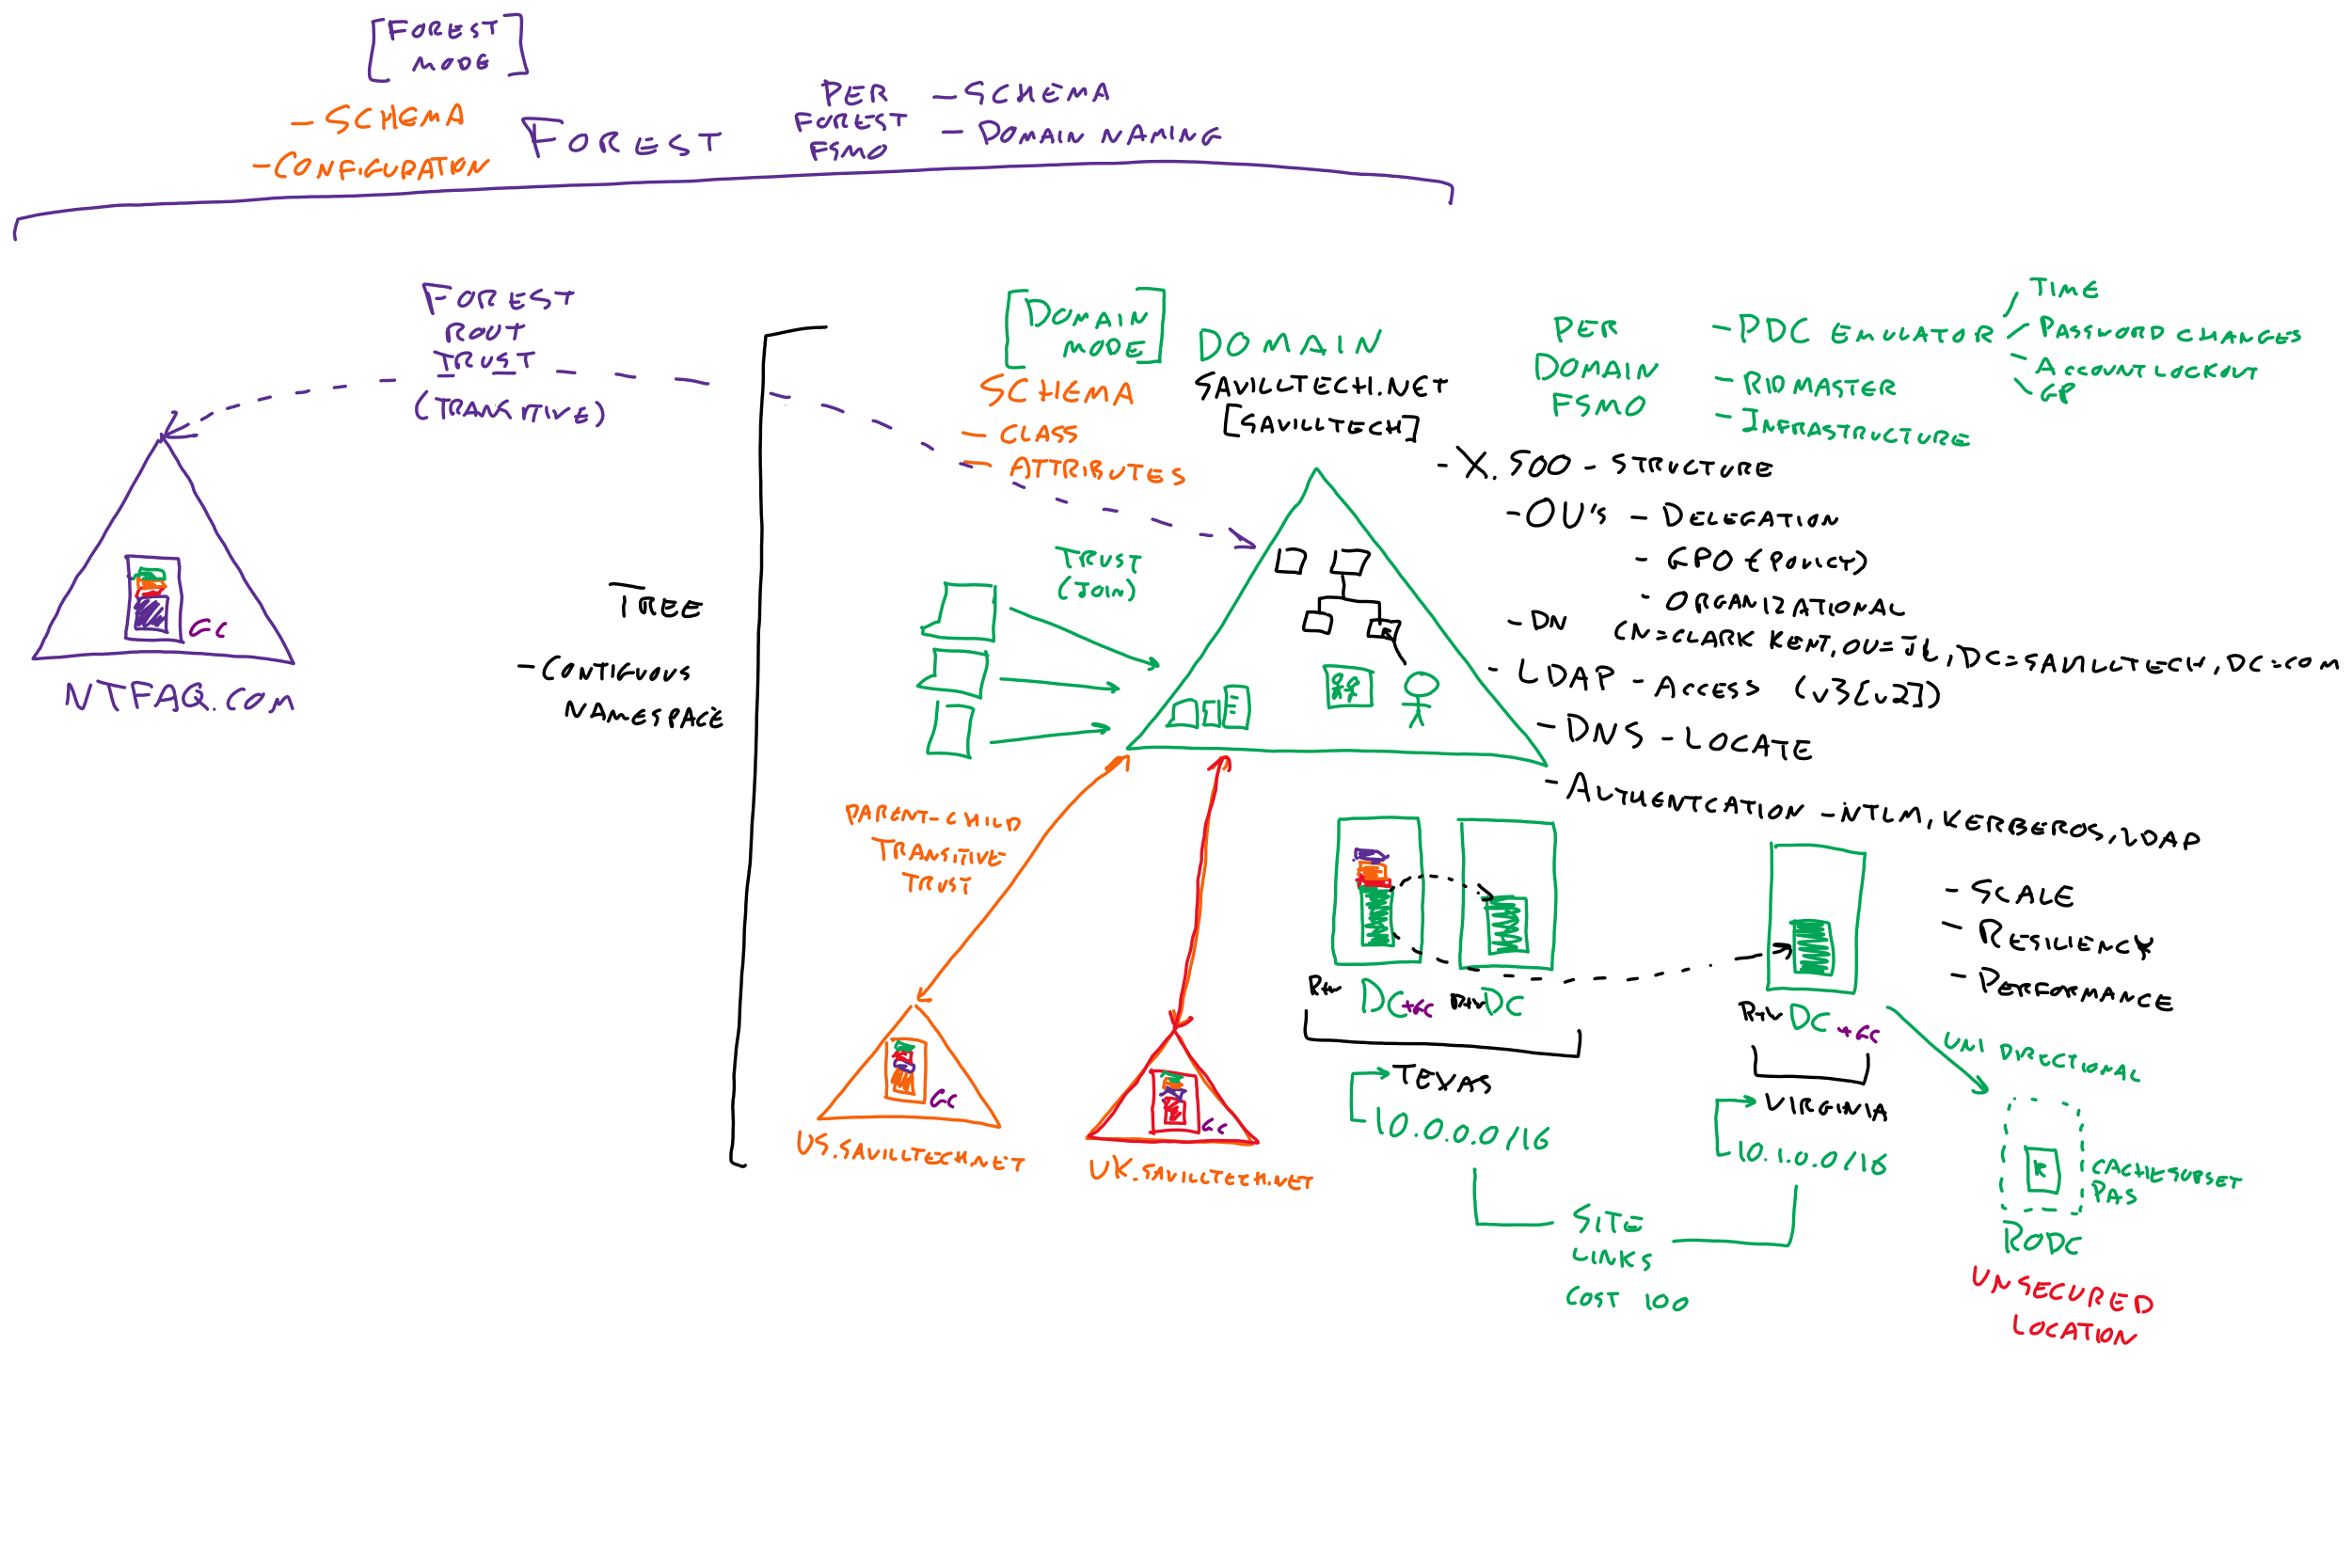 [FOREST
MODE]
- SCHEMA
- CONFIGURATION
FOREST
PER
FOREST
FSMO
- SCHEMA
- DOMAIN NAMING
FOREST
ROUT
TRUST
(TRANSITIVE)
GC
NTFAQ.COM
TREE
- CONTIGUOUS
NAMESPACE
[DOMAIN
MODE]
SCHEMA
- CLASS
- ATTRIBUTES
DOMAIN
SAVILLTECH.NET
[SAVILLTECH]
PER
DOMAIN
FSMO
- PDC EMULATOR
- RID MASTER
- INFRASTRUCTURE
TIME
PASSWORD CHANGES
ACCOUNT LOCKOUT
GP
- X.500 - STRUCTURE
- OU'S - DELEGATION
- GPO (POLICY)
- ORGANIZATIONAL
- DN CN=CLARK KENT, OU=JL, DC=SAVILLTECH, DC=COM
- LDAP - ACCESS (V3[V2])
- DNS - LOCATE
- AUTHENTCATION - NTLM, KERBEROS, LDAP
TRUST
(JOIN)
PARENT-CHILD
TRANSITIVE
TRUST
GC
US.SAVILLTECH.NET
GC
UK.SAVILLTECH.NET
R+W DC+GC R+W DC
TEXAS
10.0.0.0/16
R+W DC +GC
VIRGINIA
10.1.0.0/16
SITE
LINKS
COST 100
- SCALE
- RESILIENCY
- PERFORMANCE
UNI DIRECTIONAL
R
CACHE SUBSET
PAS
RODC
UNSECURED
LOCATION